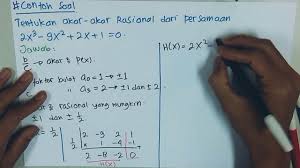 # Contoh Soal
Tentukan akar-akar Rasional dari persamaan
2x³ - 9x² + 2x + 1 = 0.
Jawab:
b/c → akar dr P(x).
faktor bulat a₀ = 1 → ±1
ii a₃ = 2 → ±1 dan ±2
rasional yang mungkin
±1 dan ± 1/2.
1/2 | 2 -9 2 1
1 -4 -1
2 -8 -2 0
H(x)
H(x) = 2x²